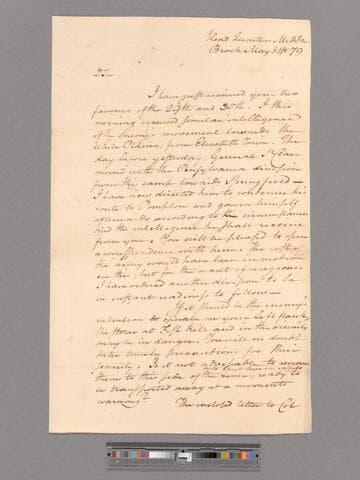 Head Quarters Middle
Brook May 31st 79
Sir
I have just received your two
favours of the 29th and 30th. I this
morning received similar intelligence
of the enemy's movement towards the
White Plains, from Elizabeth Town. The
day before yesterday, General St Clair
moved with the Pensylvania division
from this camp towards Springfield —
I have now directed him to continue his
route to Pompton and govern himself
afterwards according to the circumstances
and the intelligence he shall receive
from you. You will be pleased to open
a correspondence with him. The rest of
the army would have been in motion
on this, but for the want of waggons
I have ordered another division to be
in instant readiness to follow —
If it should be the enemy's
intention to operate on your left flank,
the stores at Fish kill and in the vicinity
may be in danger. You will no doubt
take timely precautions for their
security. Is it not adviseable to remove
them to the side of the river, ready to
be transported away at a moments
warning?
The inclosed letter to Col